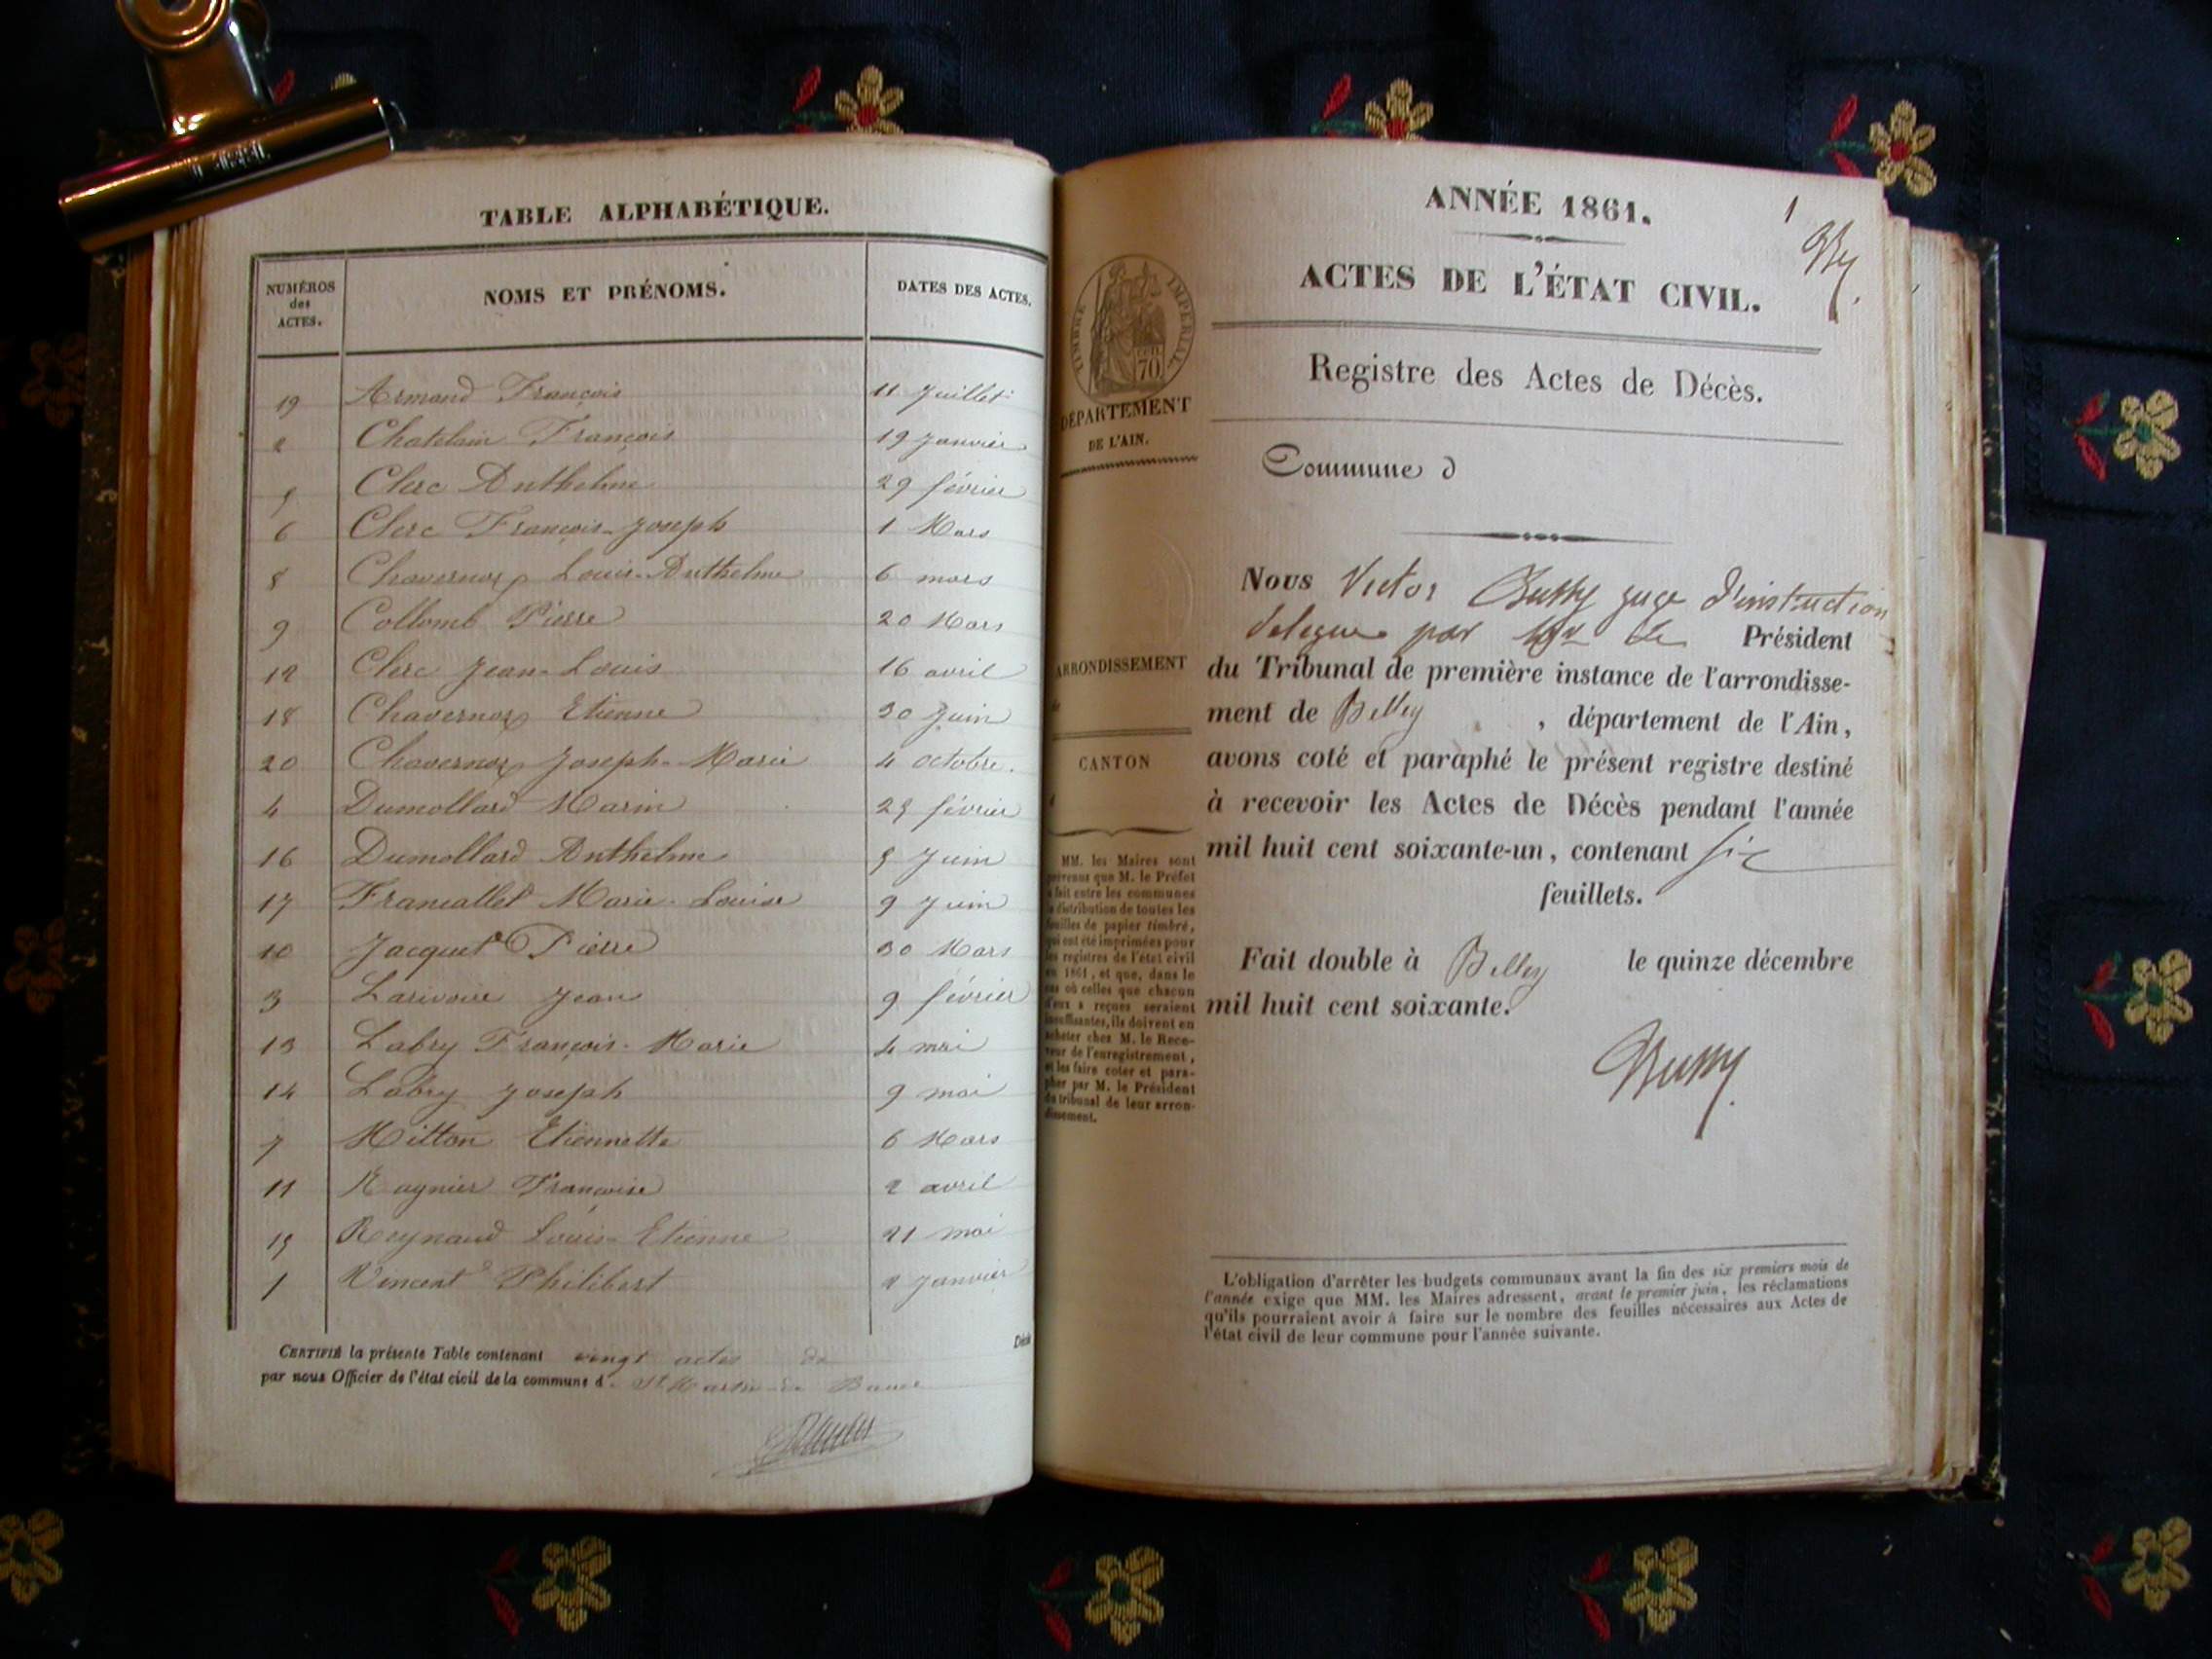 TABLE ALPHABÉTIQUE.
NUMÉROS
des
ACTES.
NOMS ET PRÉNOMS.
DATES DES ACTES.
19 Armand François 11 Juillet
2 Chatelain François 19 Janvier
5 Clerc Anthelme 29 février
6 Clerc François-Joseph 1 Mars
8 Chavernoz Louis-Anthelme 6 mars
9 Collomb Pierre 20 Mars
12 Clerc Jean-Louis 16 avril
18 Chavernoz Etienne 30 Juin
20 Chavernoz Joseph-Marie 4 octobre.
4 Dumollard Marin février
16 Dumollard Anthelme 5 Juin
17 Francallet Marie-Louise 9 Juin
10 Jacquet Pierre 30 Mars
3 Larivoire Jean 9 février
13 Labry François-Marie 4 mai
14 Labry Joseph 9 mai
7 Mitton Etiennette 6 Mars
11 Raynier Françoise 2 avril
15 Reynaud Louis-Etienne 21 mai
1 Vincent Philibert 2 Janvier
CERTIFIÉ la présente Table contenant vingt actes de
par nous Officier de l'état civil de la commune d St Martin-de
ANNÉE 1861.
1
ACTES DE L'ÉTAT CIVIL.
TIMBRE IMPÉRIAL
70
Registre des Actes de Décès.
DÉPARTEMENT
DE L'AIN.
Commune d
Nous Victor Bussy juge d'instruction
délégué par Mr le Président
du Tribunal de première instance de l'arrondisse-
ment de Belley , département de l'Ain,
avons coté et paraphé le présent registre destiné
à recevoir les Actes de Décès pendant l'année
mil huit cent soixante-un, contenant six
feuillets.
Fait double à Belley le quinze décembre
mil huit cent soixante.
Bussy
ARRONDISSEMENT
CANTON
MM. les Maires sont
prévenus que M. le Préfet
a fait entre les communes
la distribution de toutes les
feuilles de papier timbré,
qui ont été imprimées pour
les registres de l'état civil
en 1861, et que, dans le
cas où celles que chacun
d'eux a reçues seraient
insuffisantes, ils doivent en
acheter chez M. le Rece-
veur de l'enregistrement,
et les faire coter et para-
pher par M. le Président
du tribunal de leur arron-
dissement.
L'obligation d'arrêter les budgets communaux avant la fin des six premiers mois de
l'année exige que MM. les Maires adressent, avant le premier juin, les réclamations
qu'ils pourraient avoir à faire sur le nombre des feuilles nécessaires aux Actes de
l'état civil de leur commune pour l'année suivante.